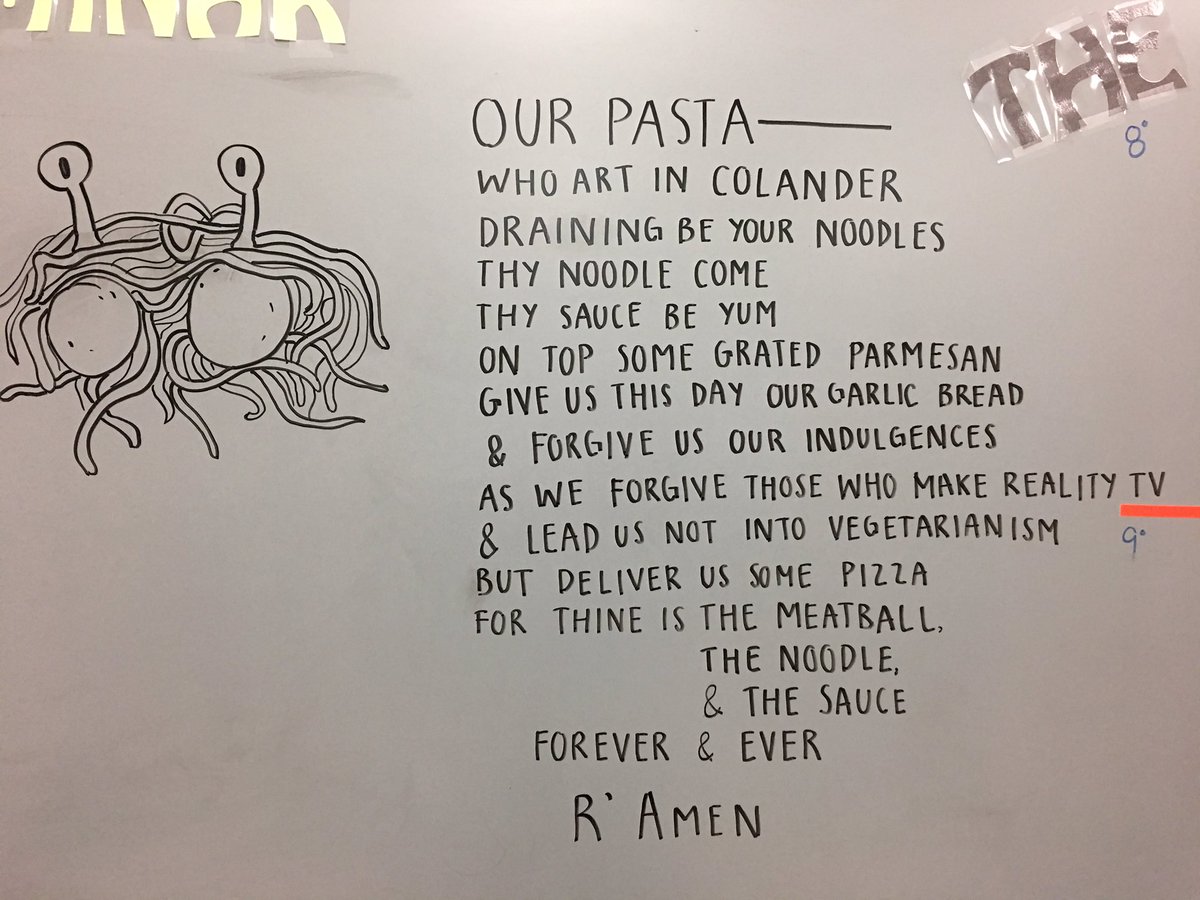 THE
8°
OUR PASTA
WHO ART IN COLANDER
DRAINING BE YOUR NOODLES
THY NOODLE COME
THY SAUCE BE YUM
ON TOP SOME GRATED PARMESAN
GIVE US THIS DAY OUR GARLIC BREAD
& FORGIVE US OUR INDULGENCES
AS WE FORGIVE THOSE WHO MAKE REALITY TV
& LEAD US NOT INTO VEGETARIANISM
9°
BUT DELIVER US SOME PIZZA
FOR THINE IS THE MEATBALL,
THE NOODLE,
& THE SAUCE
FOREVER & EVER
R'AMEN